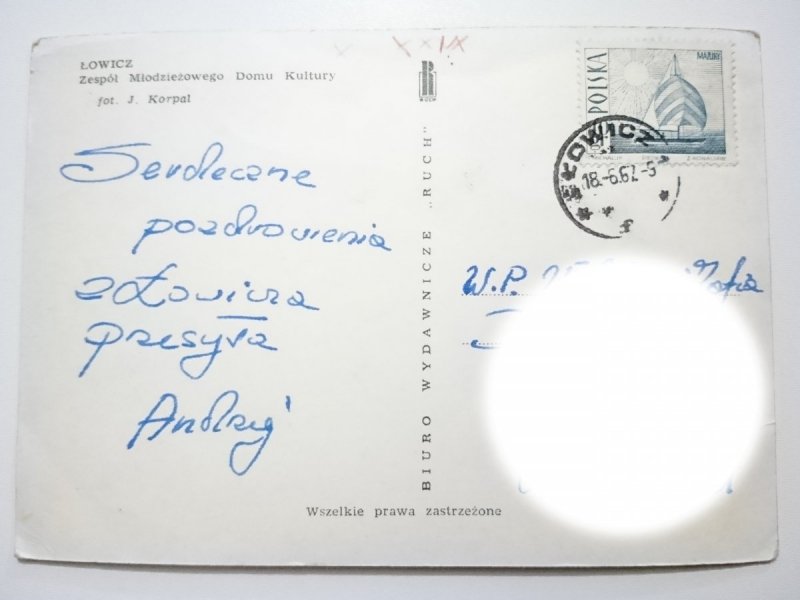 ŁOWICZ
Zespół Młodzieżowego Domu Kultury
fot. J. Korpal
Serdeczne
pozdrowienia
z Łowicza
przesyła
Andrzej
BIURO WYDAWNICZE „RUCH"
RUCH
Wszelkie prawa zastrzeżone
POLSKA
MAZURY
ŁOWICZ
18.-6.67.-9
W.P.